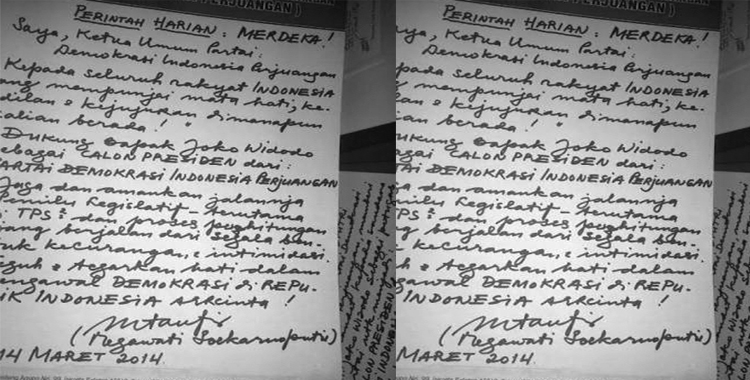 PERINTAH HARIAN : MERDEKA !
Saya, Ketua Umum Partai :
Demokrasi Indonesia Perjuangan
Kepada seluruh rakyat INDONESIA
ang mempunjai mata hati, ke-
dilan & kejujuran dimanapun
alian berada ! "
Dukung Bapak Joko Widodo
ebagai CALON PRESIDEN dari :
ARTAI DEMOKRASI INDONESIA PERJUANGAN
Jaga dan amankan jalannja
Pemilu Legislatif - terutama
i TPS² dan proses penghitungan
jang berjalan dari segala ben-
tuk kecurangan, & intimidasi.
eguh & tegarkan hati dalam
engawal DEMOKRASI di REPU-
IK INDONESIA arrcinta !
( Megawati Soekarnoputri )
14 MARET 2014.
PERJUANGAN )
PERINTAH HARIAN : MERDEKA !
aya, Ketua Umum Partai :
Demokrasi Indonesia Perjuangan
pada seluruh rakyat INDONESIA
ng mempunjai mata hati, ke-
lan & kejujuran dimanapun
an berada ! "
ukung Bapak Joko Widodo
agai CALON PRESIDEN dari :
TAI DEMOKRASI INDONESIA PERJUANGAN
a dan amankan jalannja
emilu Legislatif - terutama
TPS² dan proses penghitungan
ng berjalan dari segala ben-
k kecurangan, & intimidasi.
guh & tegarkan hati dalam
ngawal DEMOKRASI di REPU-
INDONESIA arrcinta !
( Megawati Soekarnoputri )
MARET 2014.